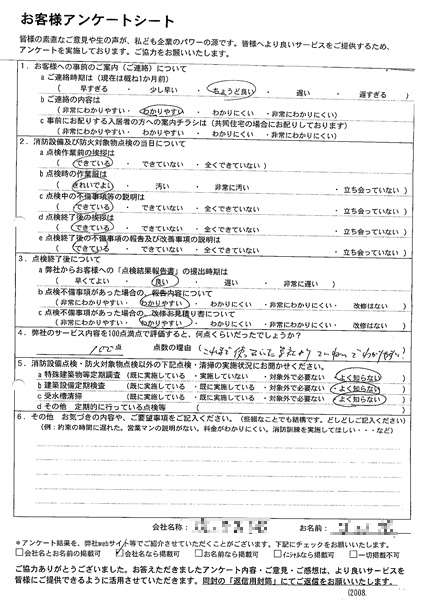 お客様アンケートシート
皆様の素直なご意見や生の声が、私ども企業のパワーの源です。皆様へより良いサービスをご提供するため、
アンケートを実施しております。ご協力をお願いいたします。
1．お客様への事前のご案内（ご連絡）について
a ご連絡時期は（現在は概ね1か月前）
（ 早すぎる ・ 少し早い ・ ちょうど良い ・ 遅い ・ 遅すぎる ）
b ご連絡の内容は
（非常にわかりやすい・ わかりやすい ・ わかりにくい ・非常にわかりにくい）
c 事前にお配りする入居者の方への案内チラシは（共同住宅の場合にお配りしております）
（非常にわかりやすい・ わかりやすい ・ わかりにくい ・非常にわかりにくい）
2．消防設備及び防火対象物点検の当日について
a 点検作業前の挨拶は
（ できている ・ できていない ・全くできていない ）
b 点検時の作業服は
（ きれいでよい ・ 汚い ・ 非常に汚い ・立ち会っていない ）
c 点検中の不備事項等の説明は
（ できている ・ できていない ・全くできていない ・立ち会っていない ）
d 点検終了後の挨拶は
（ できている ・ できていない ・全くできていない ・立ち会っていない ）
e 点検終了後の不備事項の報告及び改善事項の説明は
（ できている ・ できていない ・全くできていない ・立ち会っていない ）
3．点検終了後について
a 弊社からお客様への「点検結果報告書」の提出時期は
（ 早くてよい ・ 良い ・ 遅い ・ 非常に遅い ）
b 点検不備事項があった場合の、報告内容について
（非常にわかりやすい・ わかりやすい ・ わかりにくい ・非常にわかりにくい・ 改修はない ）
c 点検不備事項があった場合の、改修お見積り書について
（非常にわかりやすい・ わかりやすい ・ わかりにくい ・非常にわかりにくい・ 改修はない ）
4．弊社のサービス内容を100点満点で評価すると、何点くらいだったでしょうか？
100点 点数の理由
5．消防設備点検・防火対象物点検以外の下記点検・清掃の実施状況にお聞かせください。
a 特殊建築物等定期調査（既に実施している ・実施していない ・対象外で必要ない ・よく知らない）
b 建築設備定期検査 （既に実施している ・実施している ・対象外で必要ない ・よく知らない）
c 受水槽清掃 （既に実施している ・実施している ・対象外で必要ない ・よく知らない）
d その他 定期的に行っている点検等（ ）
6．その他 お気づきの内容や、ご要望事項をご記入ください。（些細なことでも結構です。どしどしご記入ください）
（例：約束の時間に遅れた。営業マンの説明がない。料金がわかりにくい。消防訓練を実施してほしい・・・など）
会社名称： お名前：
＊アンケート結果を、弊社webサイト等でご紹介させていただくことがございます。下記にチェックをお願いいたします。
□会社名とお名前の掲載可 ☑会社名なら掲載可 □お名前なら掲載可 □イニシャルなら掲載可 □一切掲載不可
ご協力ありがとうございました。お答えただきましたアンケート内容・ご意見・ご感想は、より良いサービスを
皆様にご提供できるように活用させていただきます。同封の「返信用封筒」にてご返信をお願いいたします。
(2008.